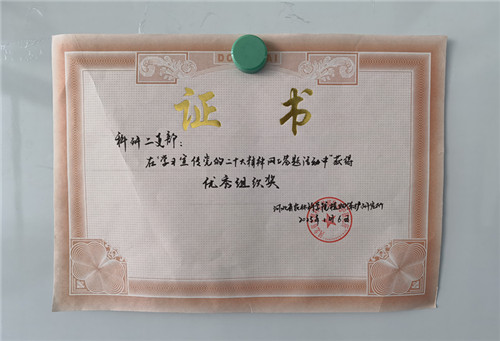 证 书
科研二支部:
在“学习宣传党的二十大精神网上答题活动中”获得
优秀组织奖
河北省农林科学院植物保护研究所